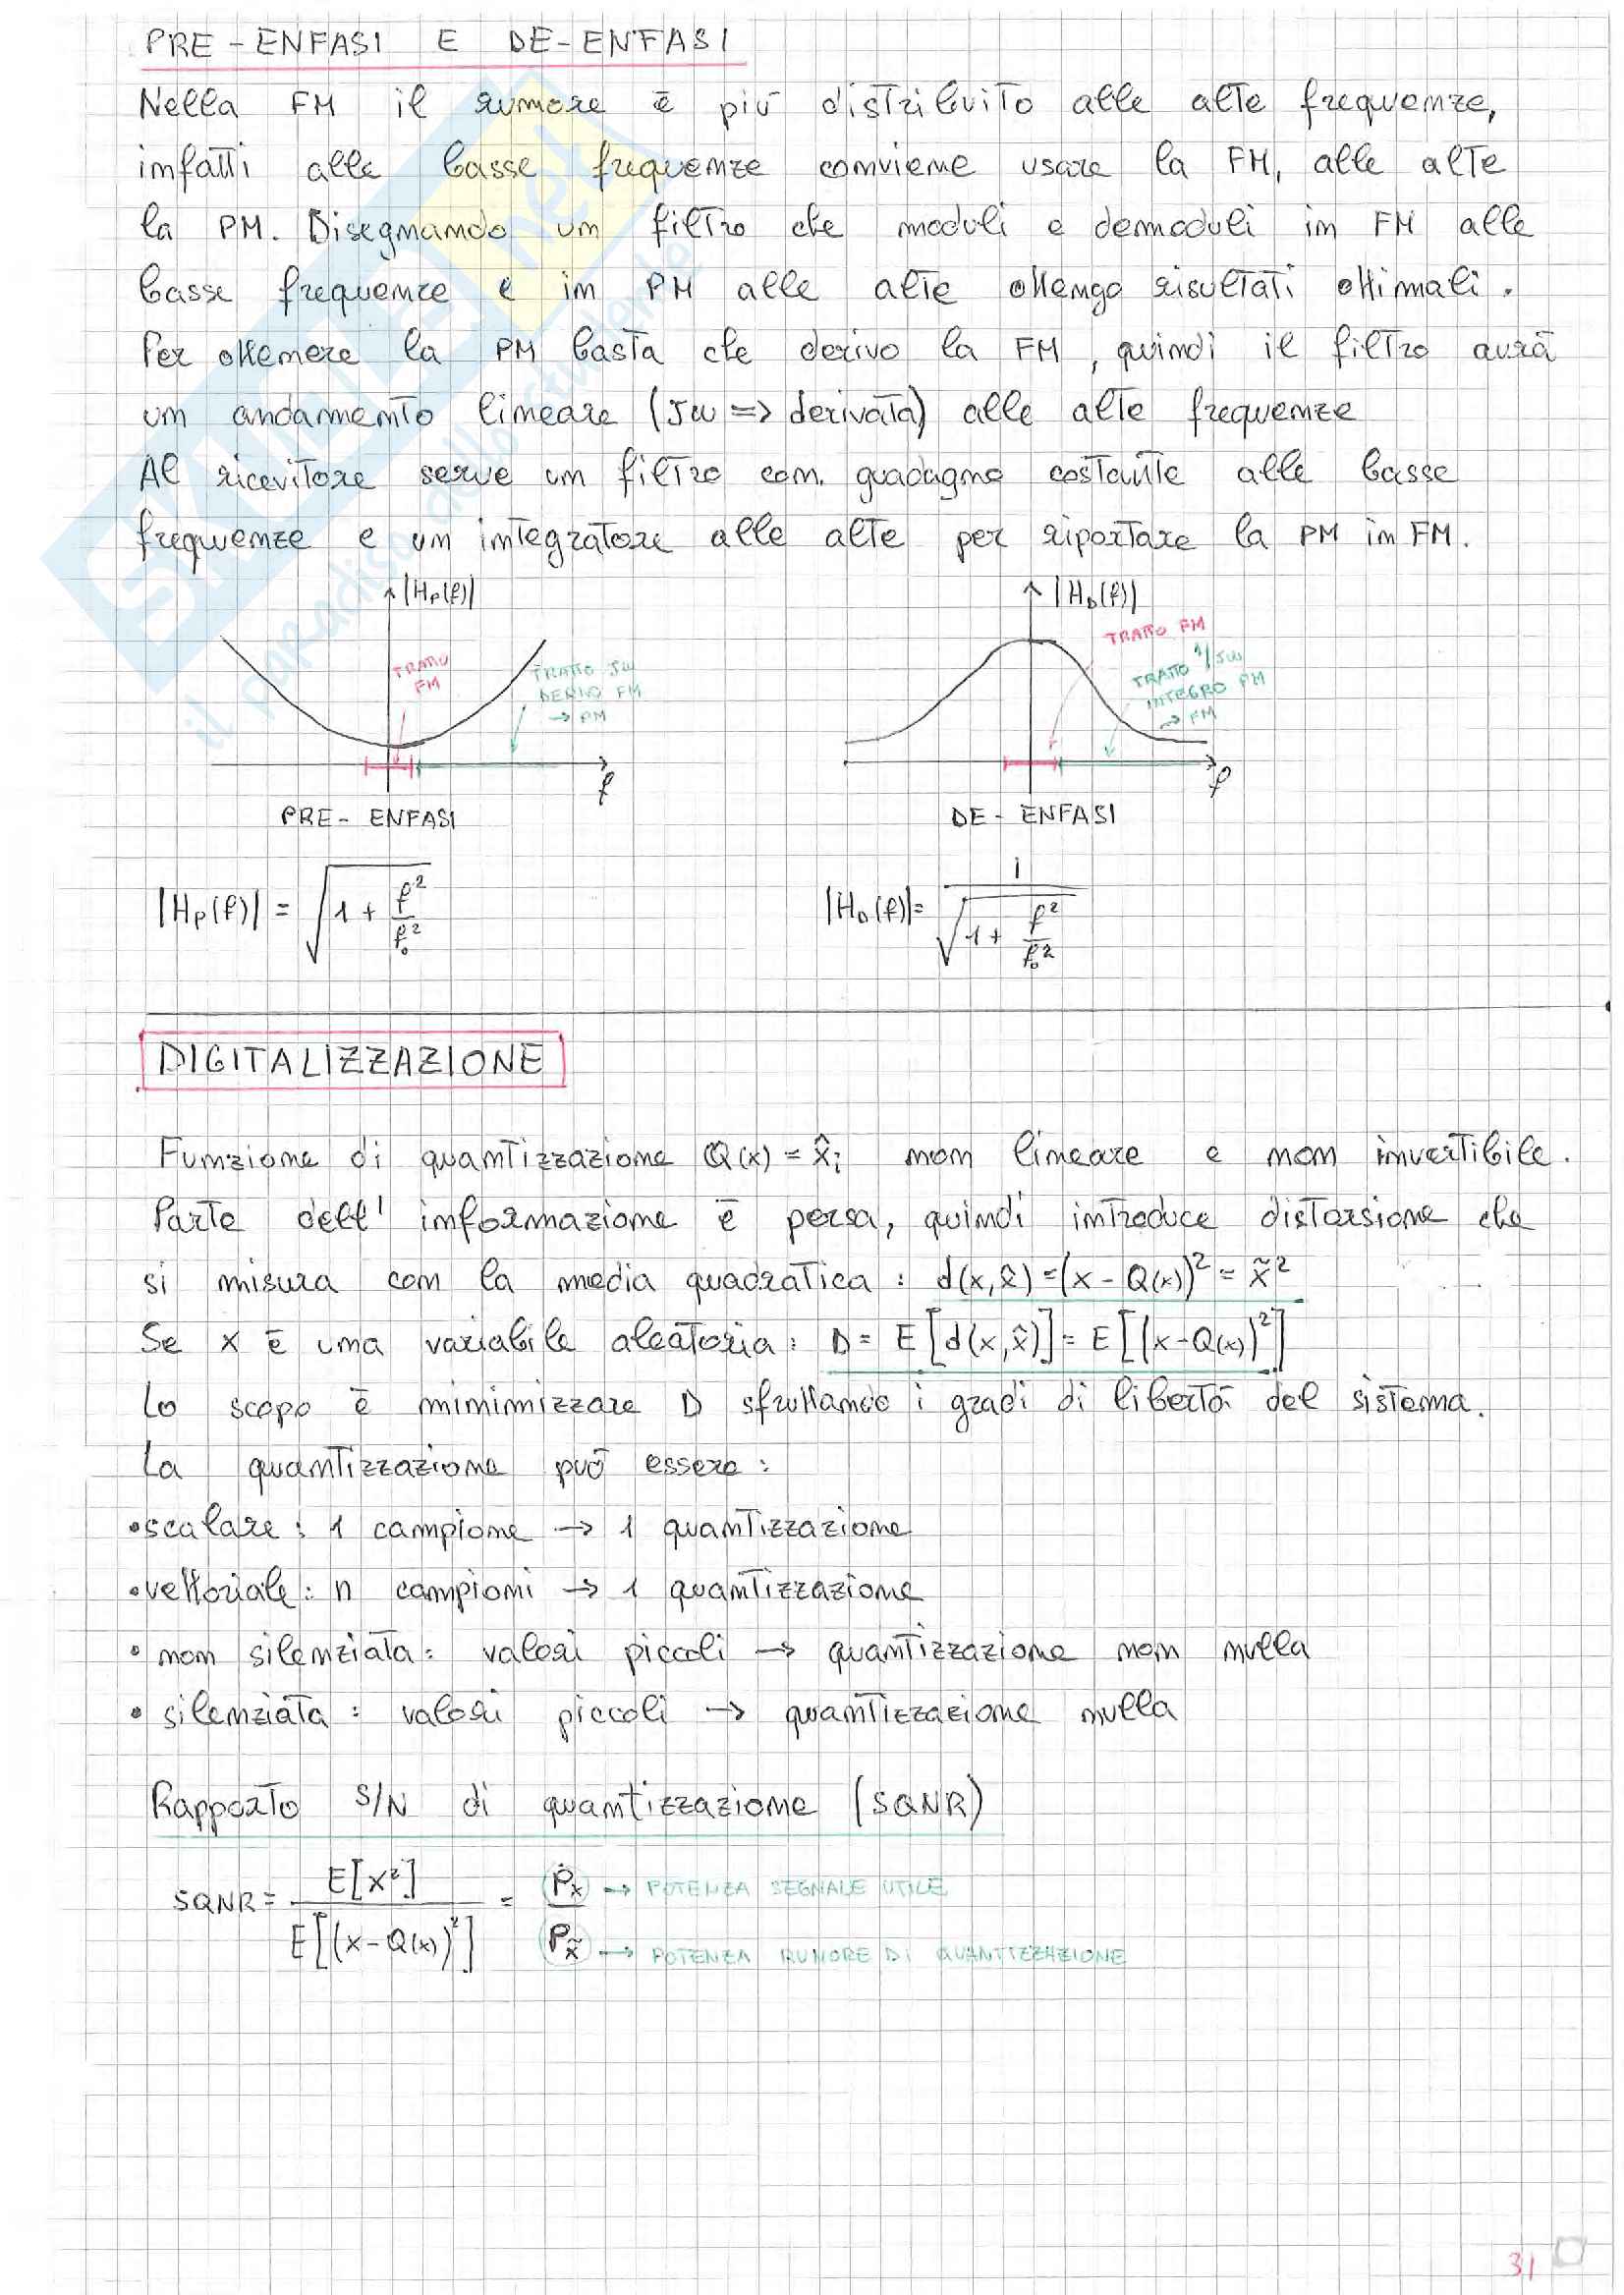 PRE-ENFASI E DE-ENFASI
Nella FM il rumore è più distribuito alle alte frequenze,
infatti alle basse frequenze conviene usare la FM, alle alte
la PM. Disegnando un filtro che moduli e demoduli in FM alle
basse frequenze e in PM alle alte ottengo risultati ottimali.
Per ottenere la PM basta che derivo la FM, quindi il filtro avrà
un andamento lineare (Jω => derivata) alle alte frequenze
Al ricevitore serve un filtro con guadagno costante alle basse
frequenze e un integratore alle alte per riportare la PM in FM.
|Hp(f)|
TRATTO FM
TRATTO Jω
DERIVO FM
→ PM
f
PRE-ENFASI
|HD(f)|
TRATTO FM
TRATTO 1/Jω
INTEGRO PM
→ FM
f
DE-ENFASI
|Hp(f)| = √(1 + f²/f₀²)
|HD(f)| = 1/√(1 + f²/f₀²)
DIGITALIZZAZIONE
Funzione di quantizzazione Q(x) = x̂i non lineare e non invertibile.
Parte dell' informazione è persa, quindi introduce distorsione che
si misura con la media quadratica: d(x,x̂) = (x - Q(x))² = x̃²
Se x è una variabile aleatoria: D = E[d(x,x̂)] = E[(x-Q(x))²]
Lo scopo è minimizzare D sfruttando i gradi di libertà del sistema.
La quantizzazione può essere:
• scalare: 1 campione → 1 quantizzazione
• vettoriale: n campioni → 1 quantizzazione
• non silenziata: valori piccoli → quantizzazione non nulla
• silenziata: valori piccoli → quantizzazione nulla
Rapporto S/N di quantizzazione (SQNR)
SQNR = E[X²] / E[(x-Q(x))²] = Px / Px̃
→ POTENZA SEGNALE UTILE
→ POTENZA RUMORE DI QUANTIZZAZIONE
31
SKUOLA.net
il paradiso dello studente